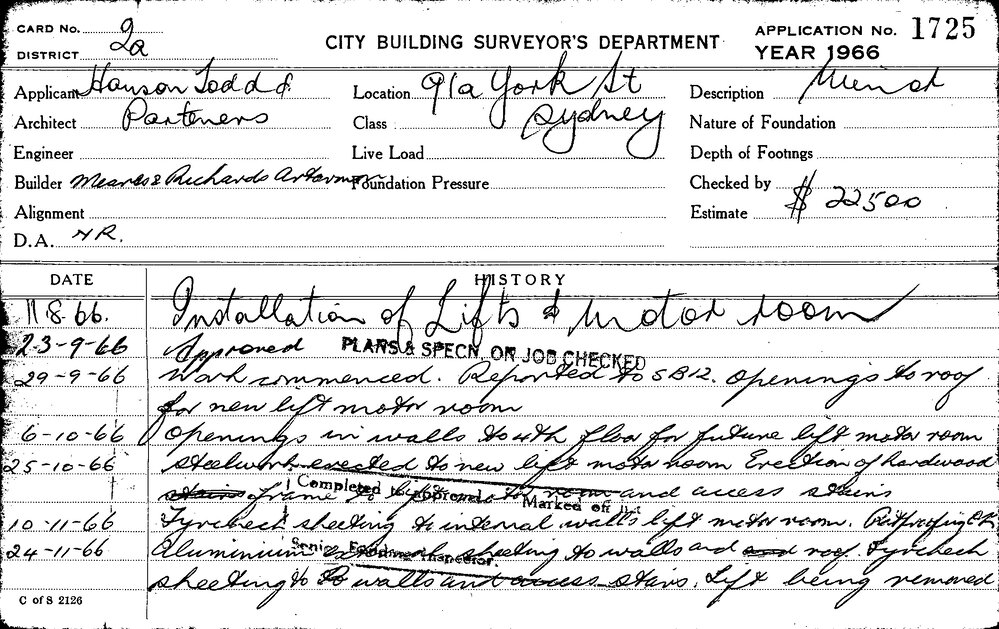 CARD No. 2a
DISTRICT
CITY BUILDING SURVEYOR'S DEPARTMENT
APPLICATION No. 1725
YEAR 1966
Applicant Hanson Todd &
Location 91a York St
Description
Architect Partners
Class Sydney
Nature of Foundation
Engineer
Live Load
Depth of Footings
Builder Meares & Richards Artarmon
Foundation Pressure
Checked by
Alignment
Estimate $ 22500
D.A. NR.
DATE
HISTORY
11 8. 66. Installation of Lifts & Motor room
23-9-66 Approved PLANS & SPECN. ON JOB CHECKED
29-9-66 Work commenced. Reported to SB12. Openings to roof
for new lift motor room
6-10-66 Openings in walls to 4th floor for future lift motor room
25-10-66 Steelwork erected to new lift motor room Erection of hardwood
stairs frame to lift motor room and access stairs
Completed to approval
Marked off list
10-11-66 Fyrcheck sheeting to internal walls lift motor room.
24-11-66 Aluminium sheeting to walls and and roof. Fyrcheck
Senior Inspector.
sheeting to to walls and access stairs. Lift being removed
C of S 2126